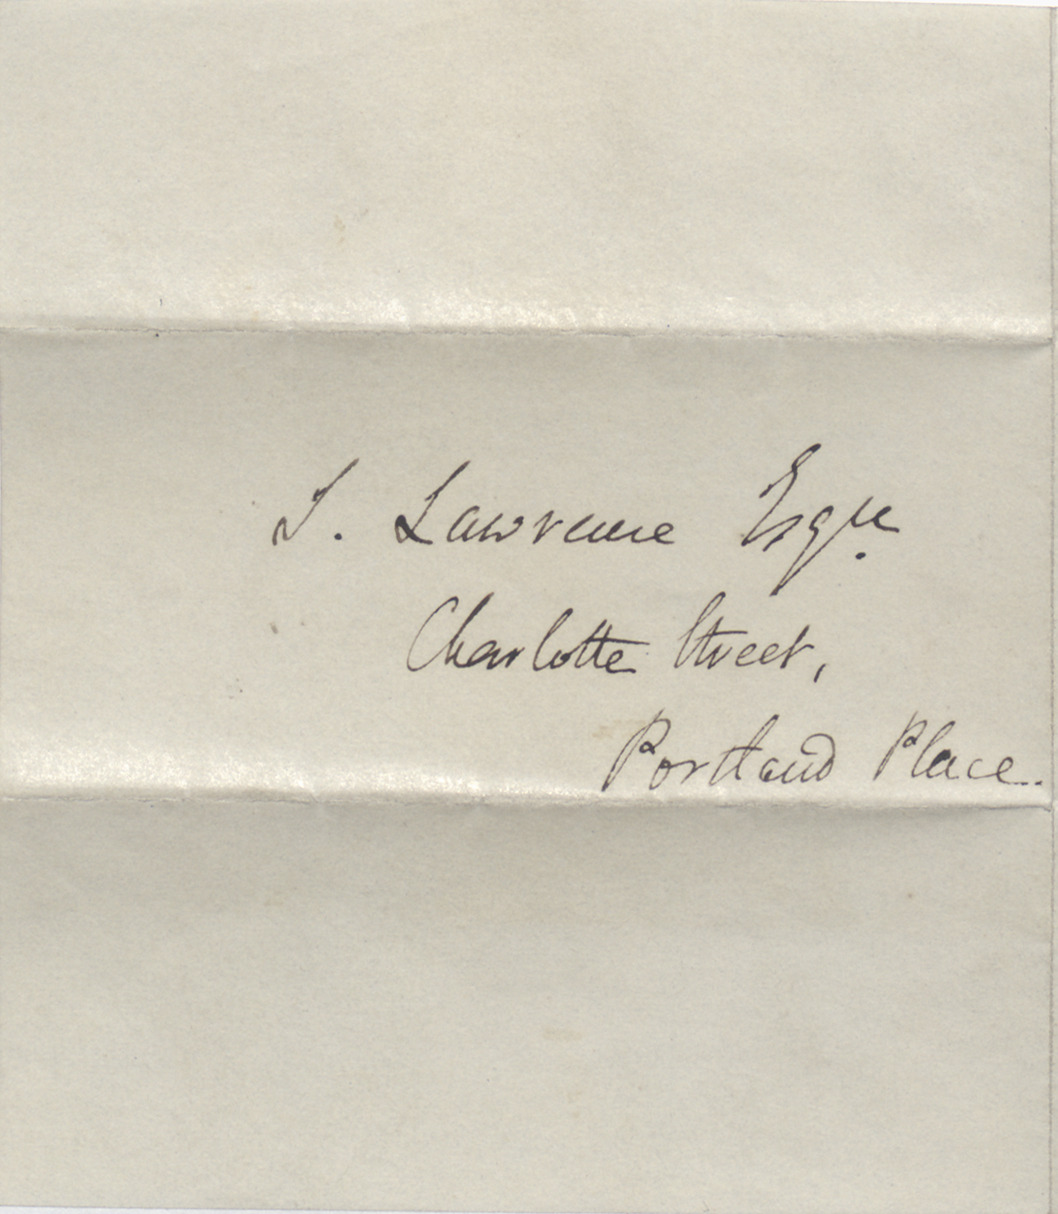 S. Lawrence Esqre.
Charlotte Street,
Portland Place.